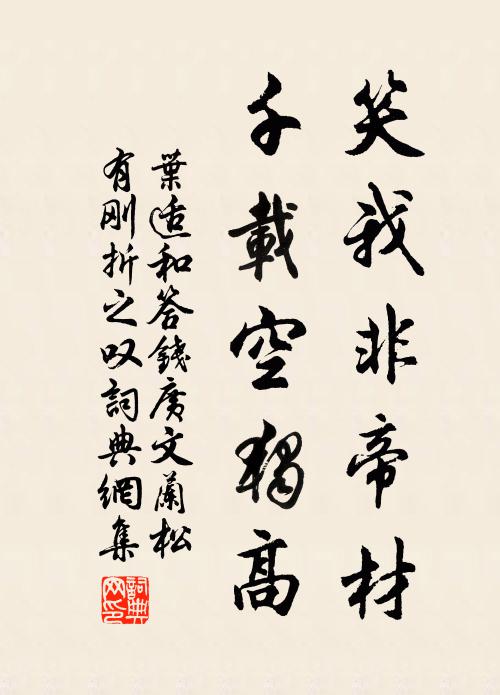 笑我非帝材
千載空獨高
葉适和答錢廣文蘭松
有剛折之叹詞典網集
詞典
网印